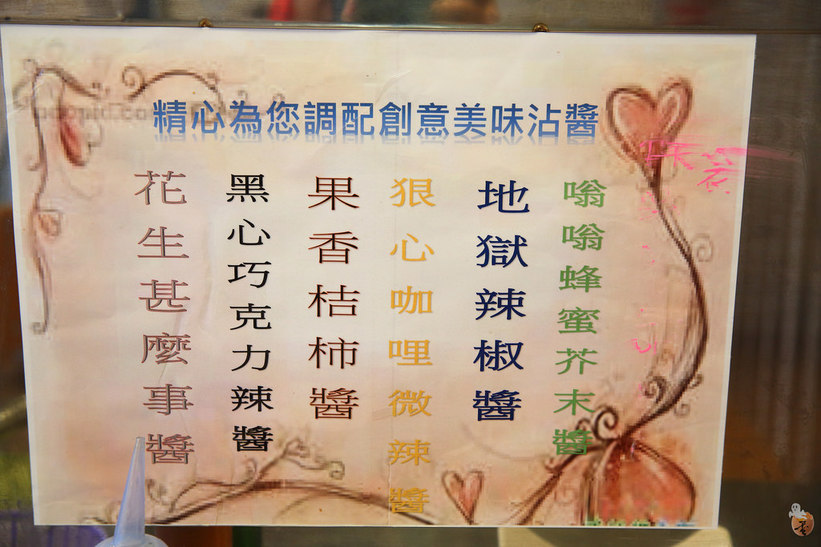 精心為您調配創意美味沾醬
嗡嗡蜂蜜芥末醬
地獄辣椒醬
狠心咖哩微辣醬
果香桔柿醬
黑心巧克力辣醬
花生甚麼事醬